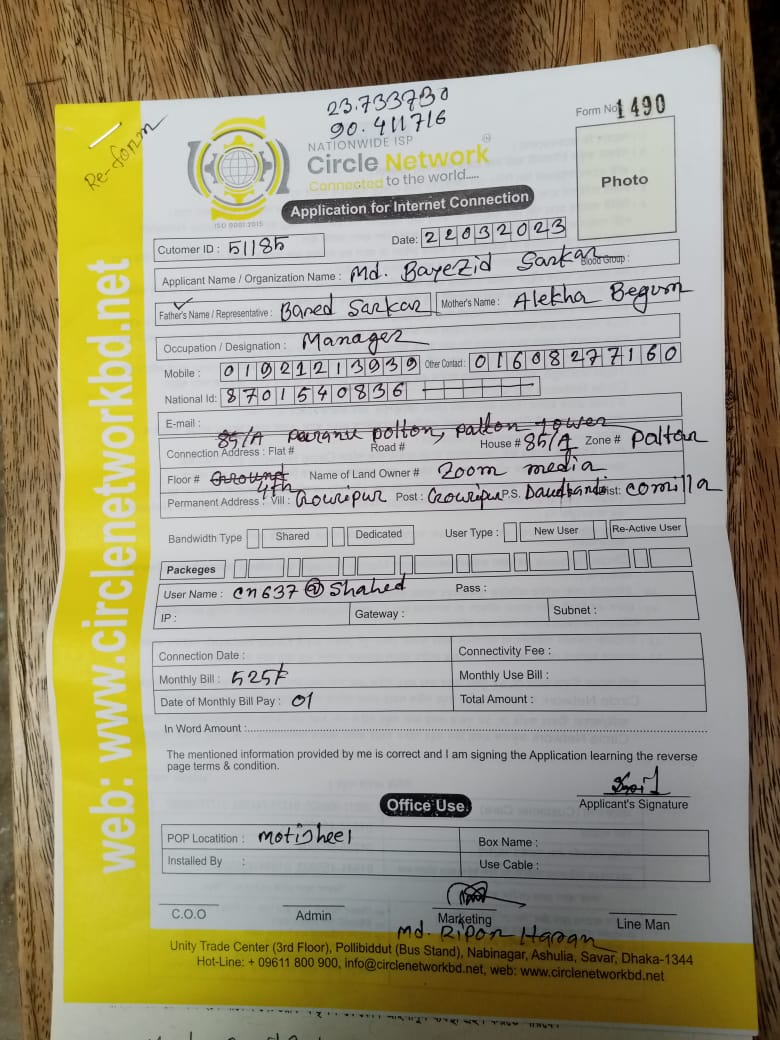 23.733730
90.411716
Form No. 1490
Re-form
NATIONWIDE ISP
Circle Network
Connected to the world.....
ISO 9001:2015
Photo
Application for Internet Connection
Cutomer ID : 51185
Date: 22032023
Applicant Name / Organization Name : Md. Bayezid Sarkar Blood Group :
Father's Name / Representative : Bared Sarkar Mother's Name : Alekha Begum
Occupation / Designation : Manager
Mobile : 01921213939 Other Contact : 01608277160
National Id: 8701540836
E-mail :
85/A paranu polton, palton tower
Connection Address : Flat # Road # House # 85/A Zone # Palton
Floor # Ground 4th Name of Land Owner # Zoom media
Permanent Address : Vill : Gouripur Post : Gouripur P.S. Daudkandi Dist: Comilla
Bandwidth Type Shared Dedicated User Type : New User Re-Active User
Packeges
User Name : cn637@Shahed Pass :
IP : Gateway : Subnet :
Connection Date : Connectivity Fee :
Monthly Bill : 525 Monthly Use Bill :
Date of Monthly Bill Pay : 01 Total Amount :
In Word Amount :
The mentioned information provided by me is correct and I am signing the Application learning the reverse
page terms & condition.
Applicant's Signature
Office Use
POP Locatition : motijheel Box Name :
Installed By : Use Cable :
C.O.O Admin Marketing Line Man
Md. Ripon Hasan
Unity Trade Center (3rd Floor), Pollibiddut (Bus Stand), Nabinagar, Ashulia, Savar, Dhaka-1344
Hot-Line: + 09611 800 900, info@circlenetworkbd.net, web: www.circlenetworkbd.net
web: www.circlenetworkbd.net